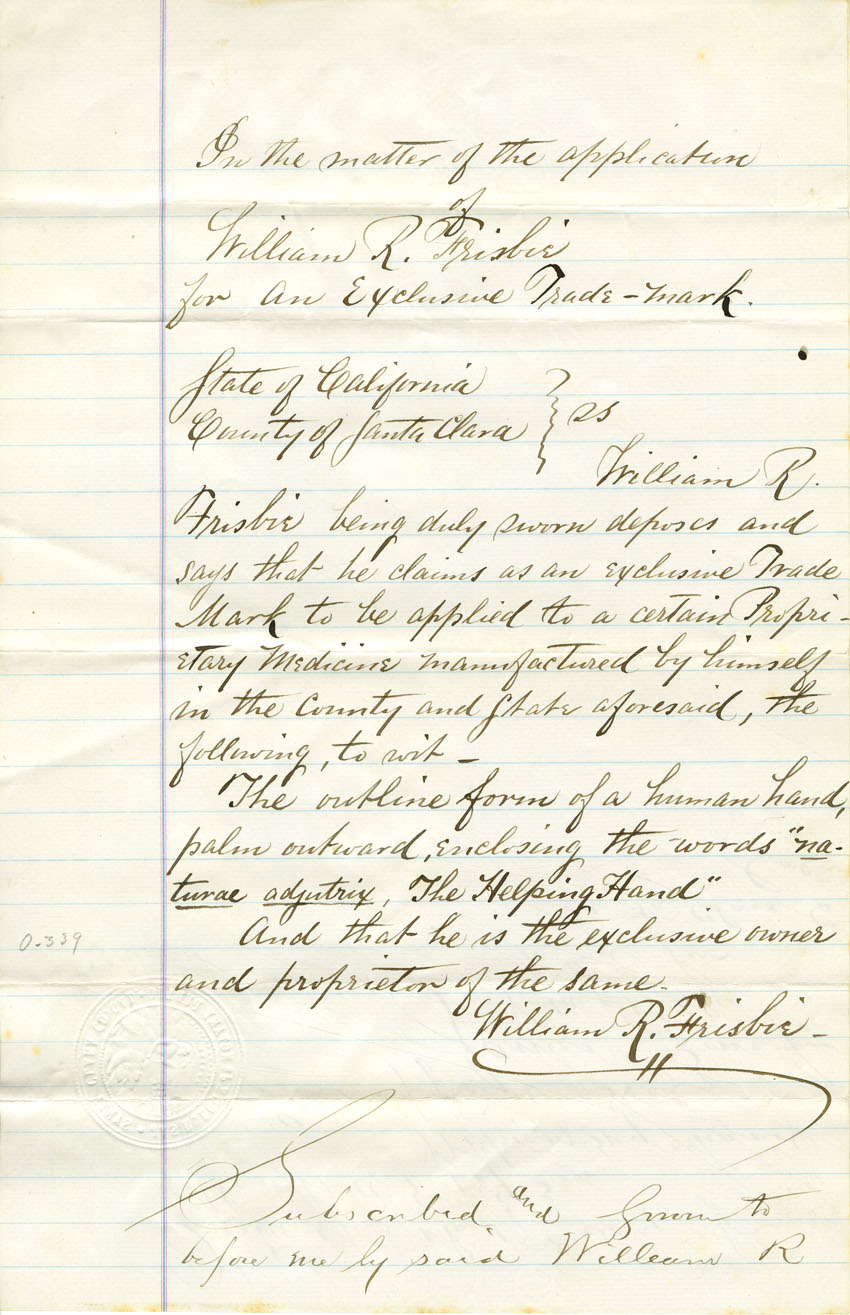 In the matter of the application
of
William R. Frisbie
for an Exclusive Trade-mark.
State of California
County of Santa Clara } ss
William R.
Frisbie being duly sworn deposes and
says that he claims as an exclusive Trade
Mark to be applied to a certain Propri-
etary Medicine manufactured by himself
in the County and State aforesaid, the
following, to wit -
The outline form of a human hand,
palm outward, enclosing the words "na-
turae adjutrix, The Helping Hand"
And that he is the exclusive owner
0-339
and proprietor of the same.
William R. Frisbie -
Subscribed and Sworn to
before me by said William R